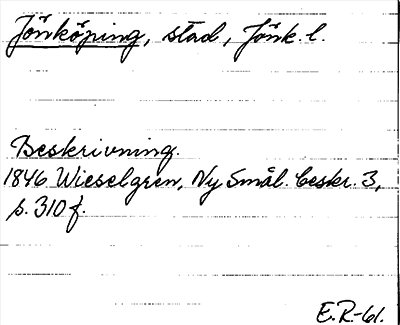 Jönköping, stad, Jönk. l.
Beskrivning.
1846 Wieselgren, Ny Smål. beskr. 3,
s. 310 f.
E.R.-61.